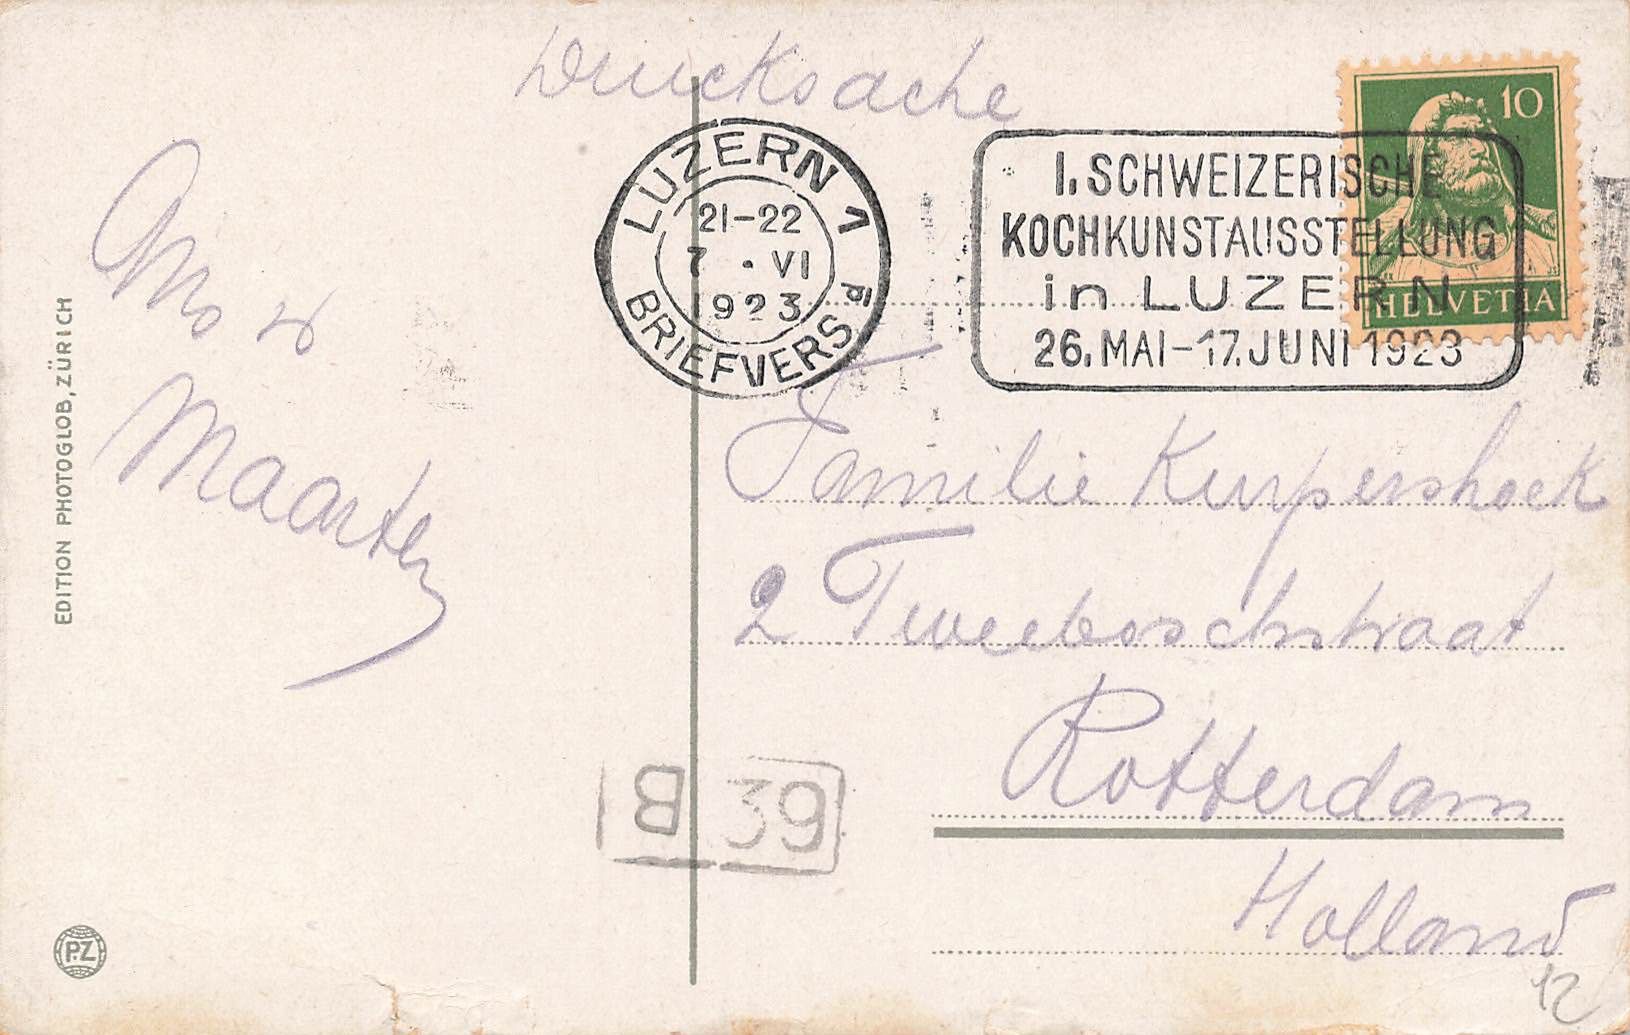 Drucksache
LUZERN 1
21-22
7 . VI
1923
BRIEFVERS
I. SCHWEIZERISCHE
KOCHKUNSTAUSSTELLUNG
in LUZERN
26. MAI-17. JUNI 1923
10
HELVETIA
Maarten
EDITION PHOTOGLOB, ZÜRICH
P.Z
Familie Kurpershoek
2 Tweeboschstraat
Rotterdam
Holland
B 39
12